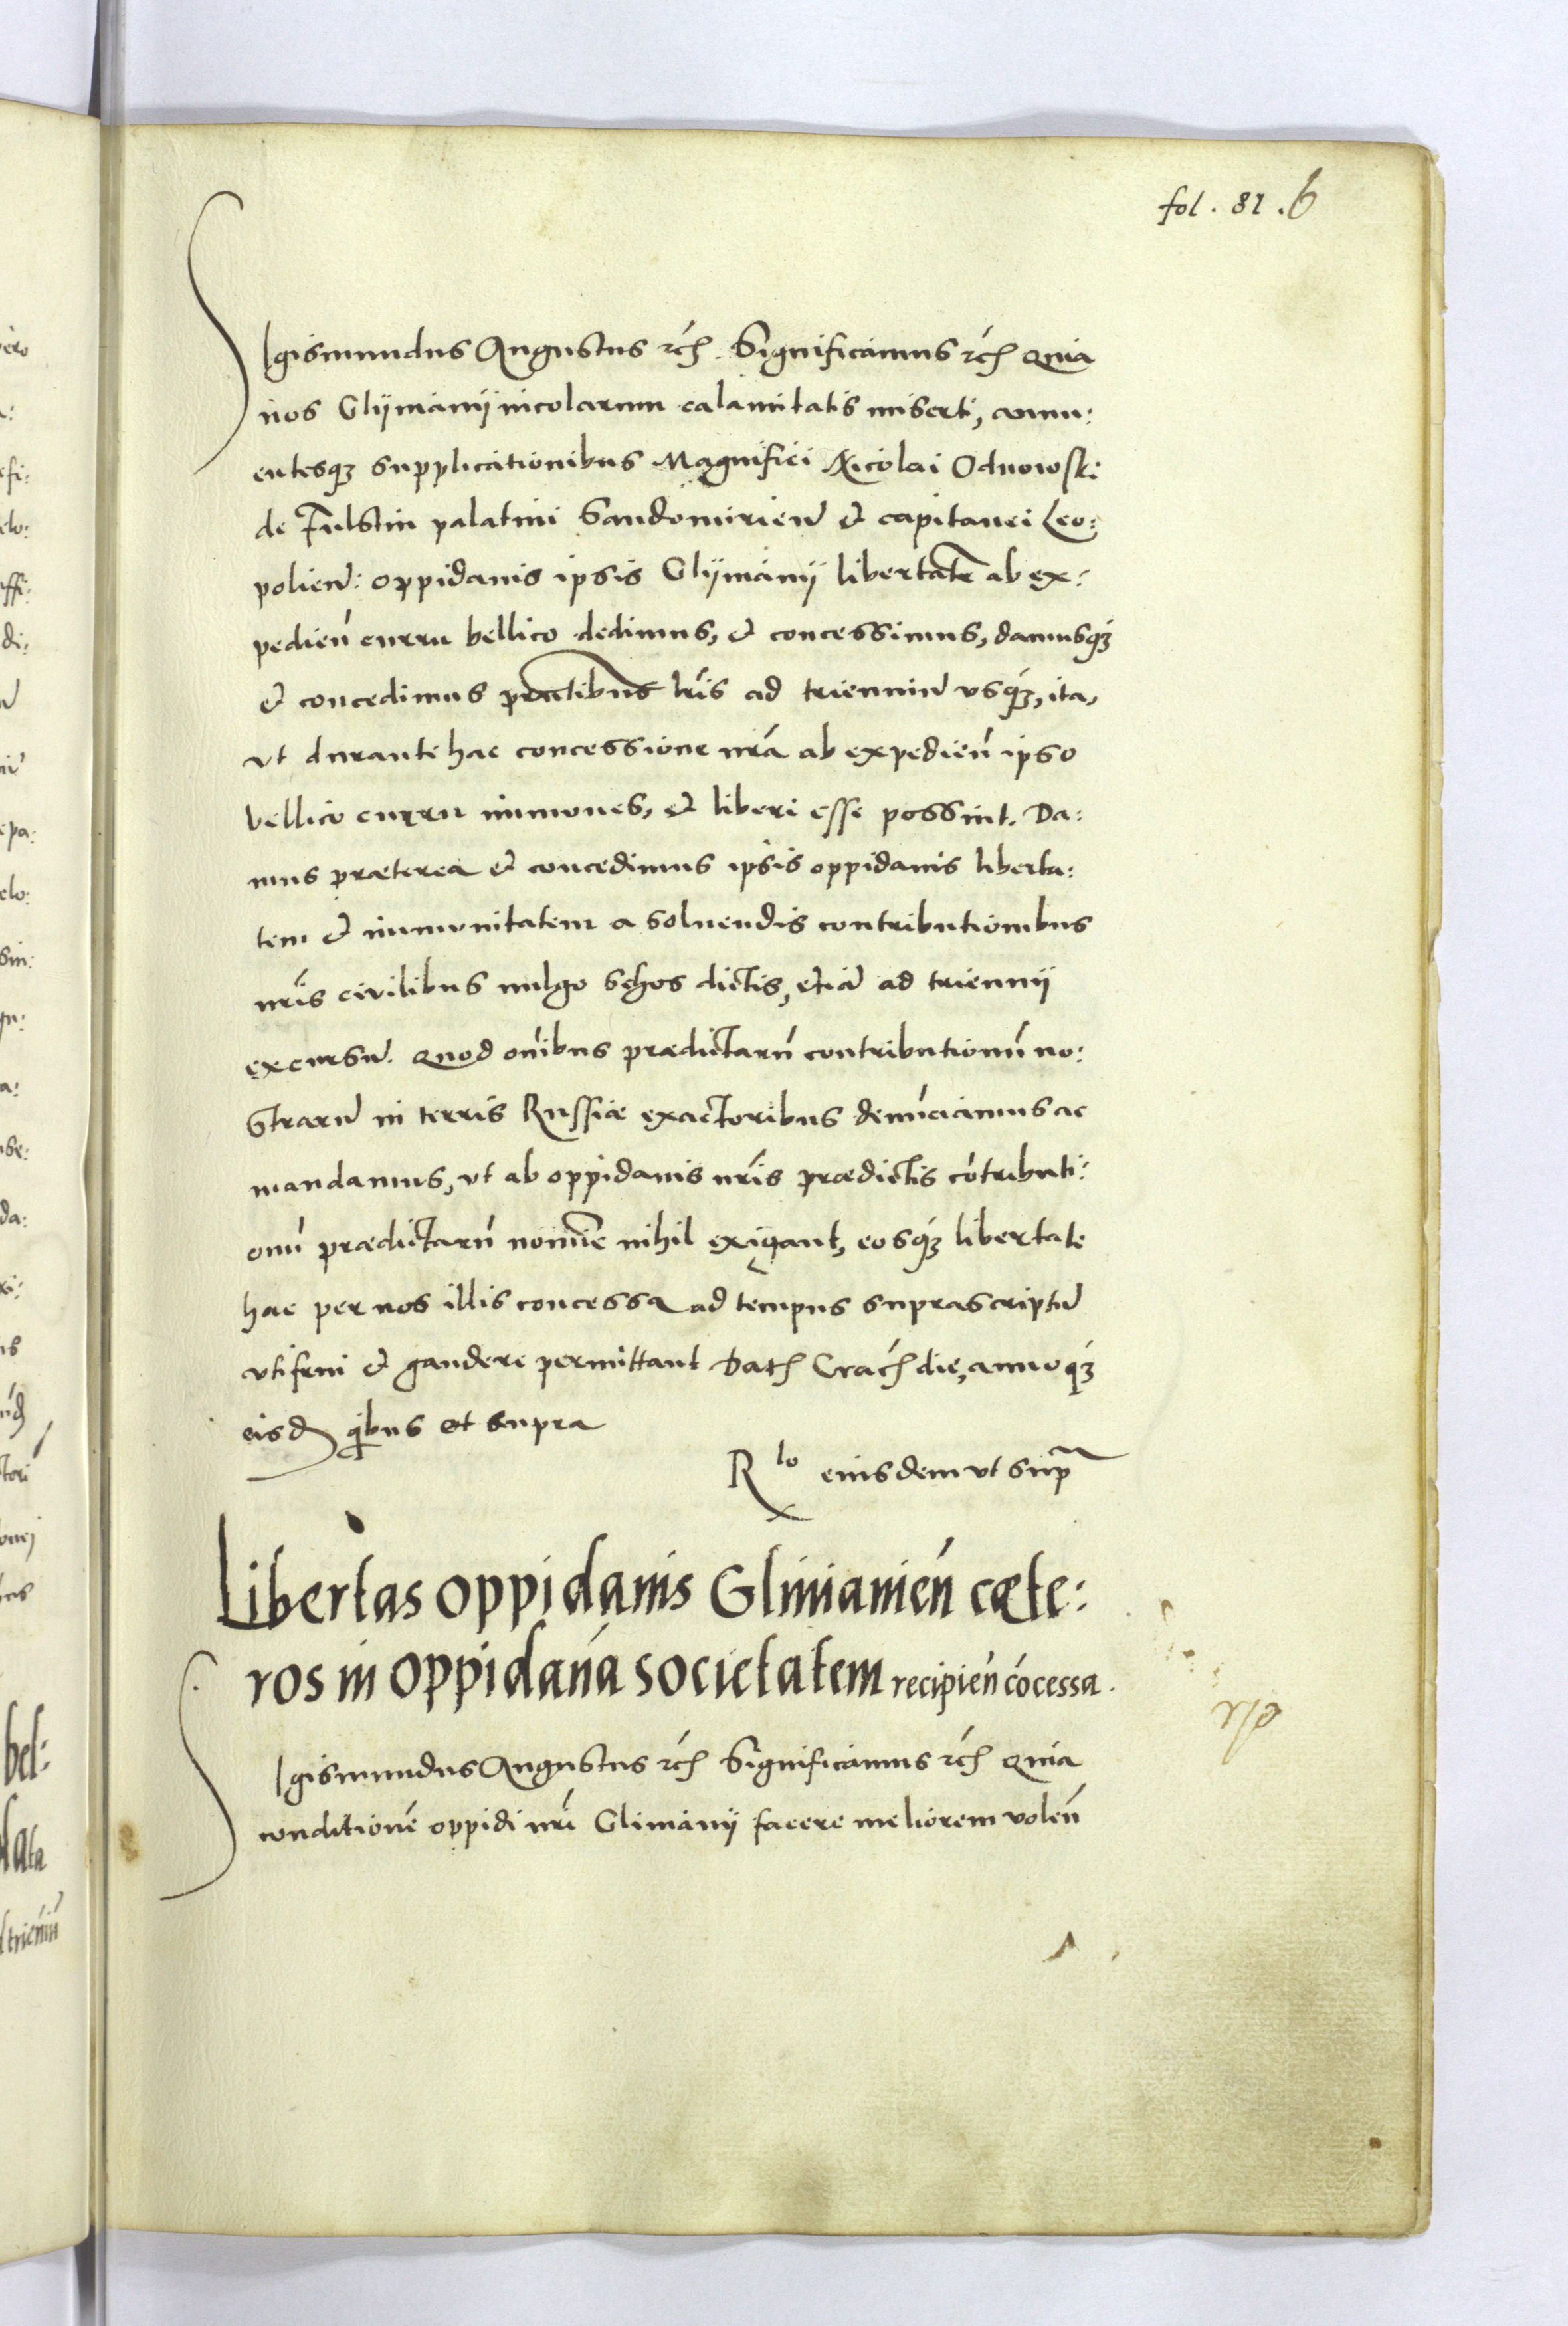 fol. 81.b
Sigismundus Augustus rc̃ħ. Significamus rc̃ħ Quia
nos Glijnianij incolarum calamitatis miserti, annu:
entesqꝫ supplicationibus Magnifici Nicolai Odnowski
de Fulstin palatini Sandomirien̄ & capitanei Leo:
polien̄: oppidanis ipsis Glijnianij libertatē ab ex:
pedien̄ curru bellico dedimus, & concessimus, damusqꝫ
& concedimus pr̃ntibus lr̃is ad trienniū usqꝫ, ita,
vt durante hac concessione nr̃a ab expedien̄ ipso
bellico curru immones, & liberi esse possint. Da:
mus præterea & concedimus ipsis oppidanis liberta:
tem & immunitatem a soluendis contributionibus
nr̃is civilibus uulgo schos dictis, etiā ad triennij
excursū. Quod om̃ibus prædictarū contributionū no:
strarū in terris Russiæ exactoribus denūciamus ac
mandamus, vt ab oppidanis nr̃is prædictis cōtributi:
onū prædictarū nomīe nihil exigant, eosqꝫ libertate
hac per nos illis concessa ad tempus suprascriptū
uti frui & gaudere permittant Datħ Cracħ die, annoqꝫ
eisd̄ q̃ibus et supra
Rˡᵒ eiusdem vt supꝛ̃
Libertas oppidanis Glinianien̄ cæte:
ros in oppidanā societatem recipien̄ cōcessa.
Sigismundus Augustus rc̃ħ Significamus rc̃ħ Quia
conditionē oppidi nr̃i Glinianij facere meliorem volen̄